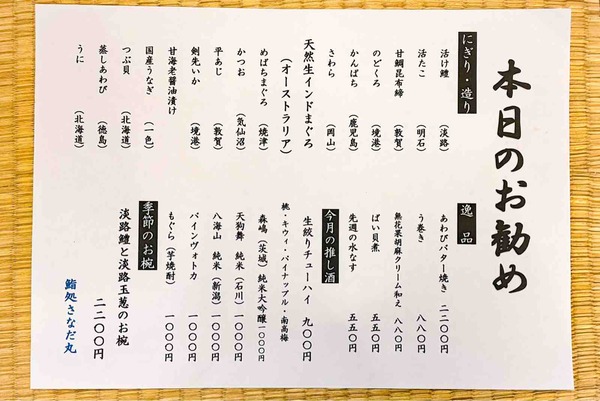 本日のお勧め
にぎり・造り
活け鱧 (淡路)
活たこ (明石)
甘鯛昆布締 (敦賀)
のどくろ (境港)
かんぱち (鹿児島)
さわら (岡山)
天然生インドまぐろ
(オーストラリア)
めばちまぐろ (焼津)
かつお (気仙沼)
平あじ (敦賀)
剣先いか (境港)
甘海老醤油漬け
国産うなぎ (一色)
つぶ貝 (北海道)
蒸しあわび (徳島)
うに (北海道)
逸品
あわびバター焼き 二二〇〇円
う巻き 八八〇円
無花果胡麻クリーム和え 八八〇円
ばい貝煮 五五〇円
先週の水なす 五五〇円
今月の推し酒
生絞りチューハイ 九〇〇円
桃・キウィ・パイナップル・南高梅
森嶋(茨城)純米大吟醸一〇〇〇円
天狗舞 純米(石川) 一〇〇〇円
八海山 純米(新潟) 一〇〇〇円
パインヴォトカ 一〇〇〇円
もぐら(芋焼酎) 一〇〇〇円
季節のお椀
淡路鱧と淡路玉葱のお椀
二二〇〇円
鮨処さなだ丸